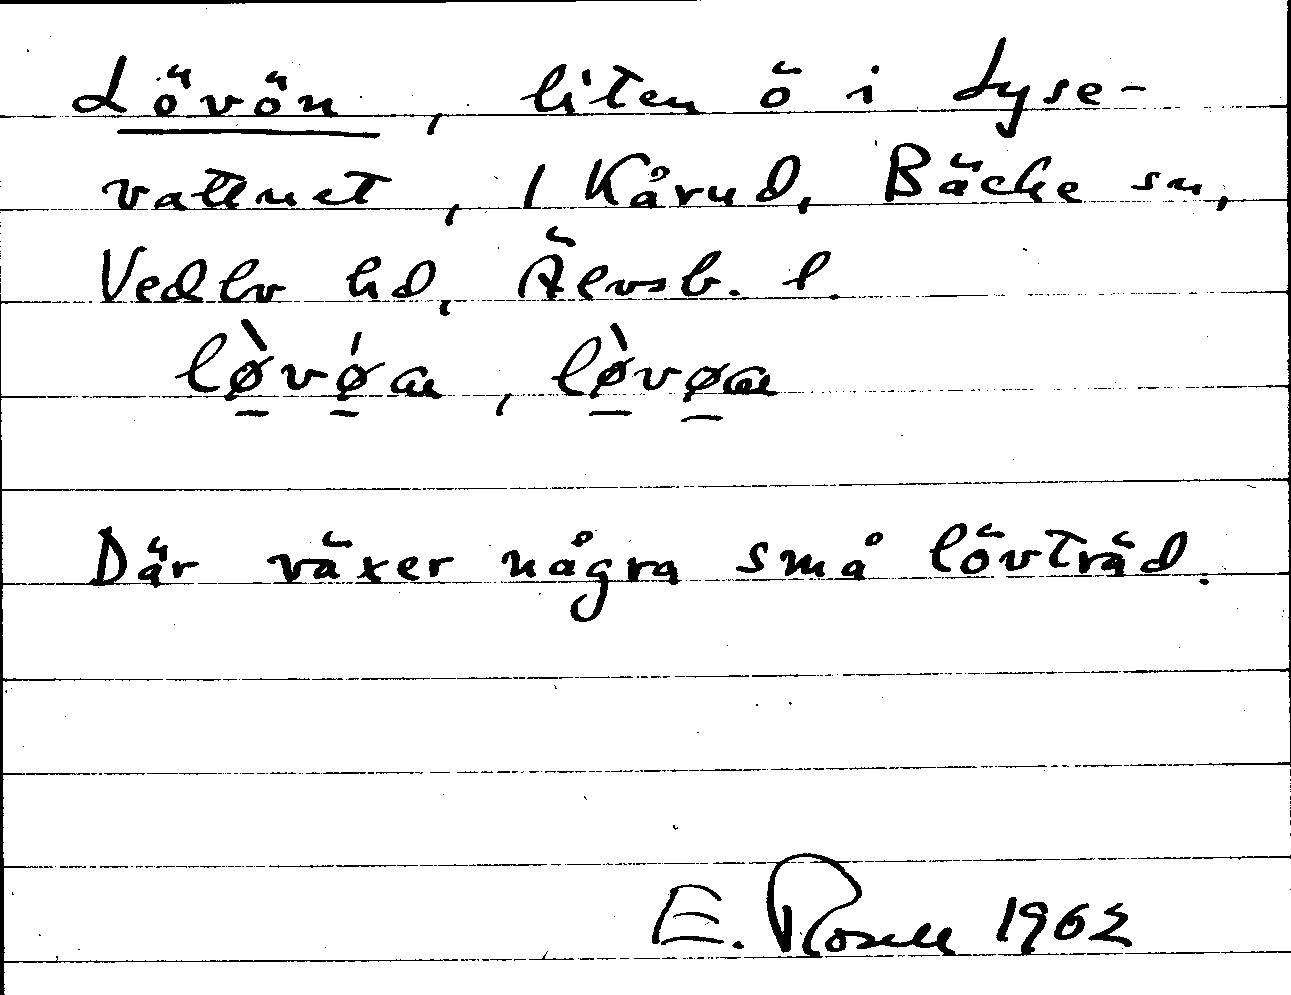 Lövön, liten ö i Lyse-
vattnet, 1 Kårud, Bäcke sn,
Vedbo hd, Älvsb. l.
lø̱̀vǿ̱a, lø̱̀vø̱a
Där växer några små lövträd.
E. Rosell 1962